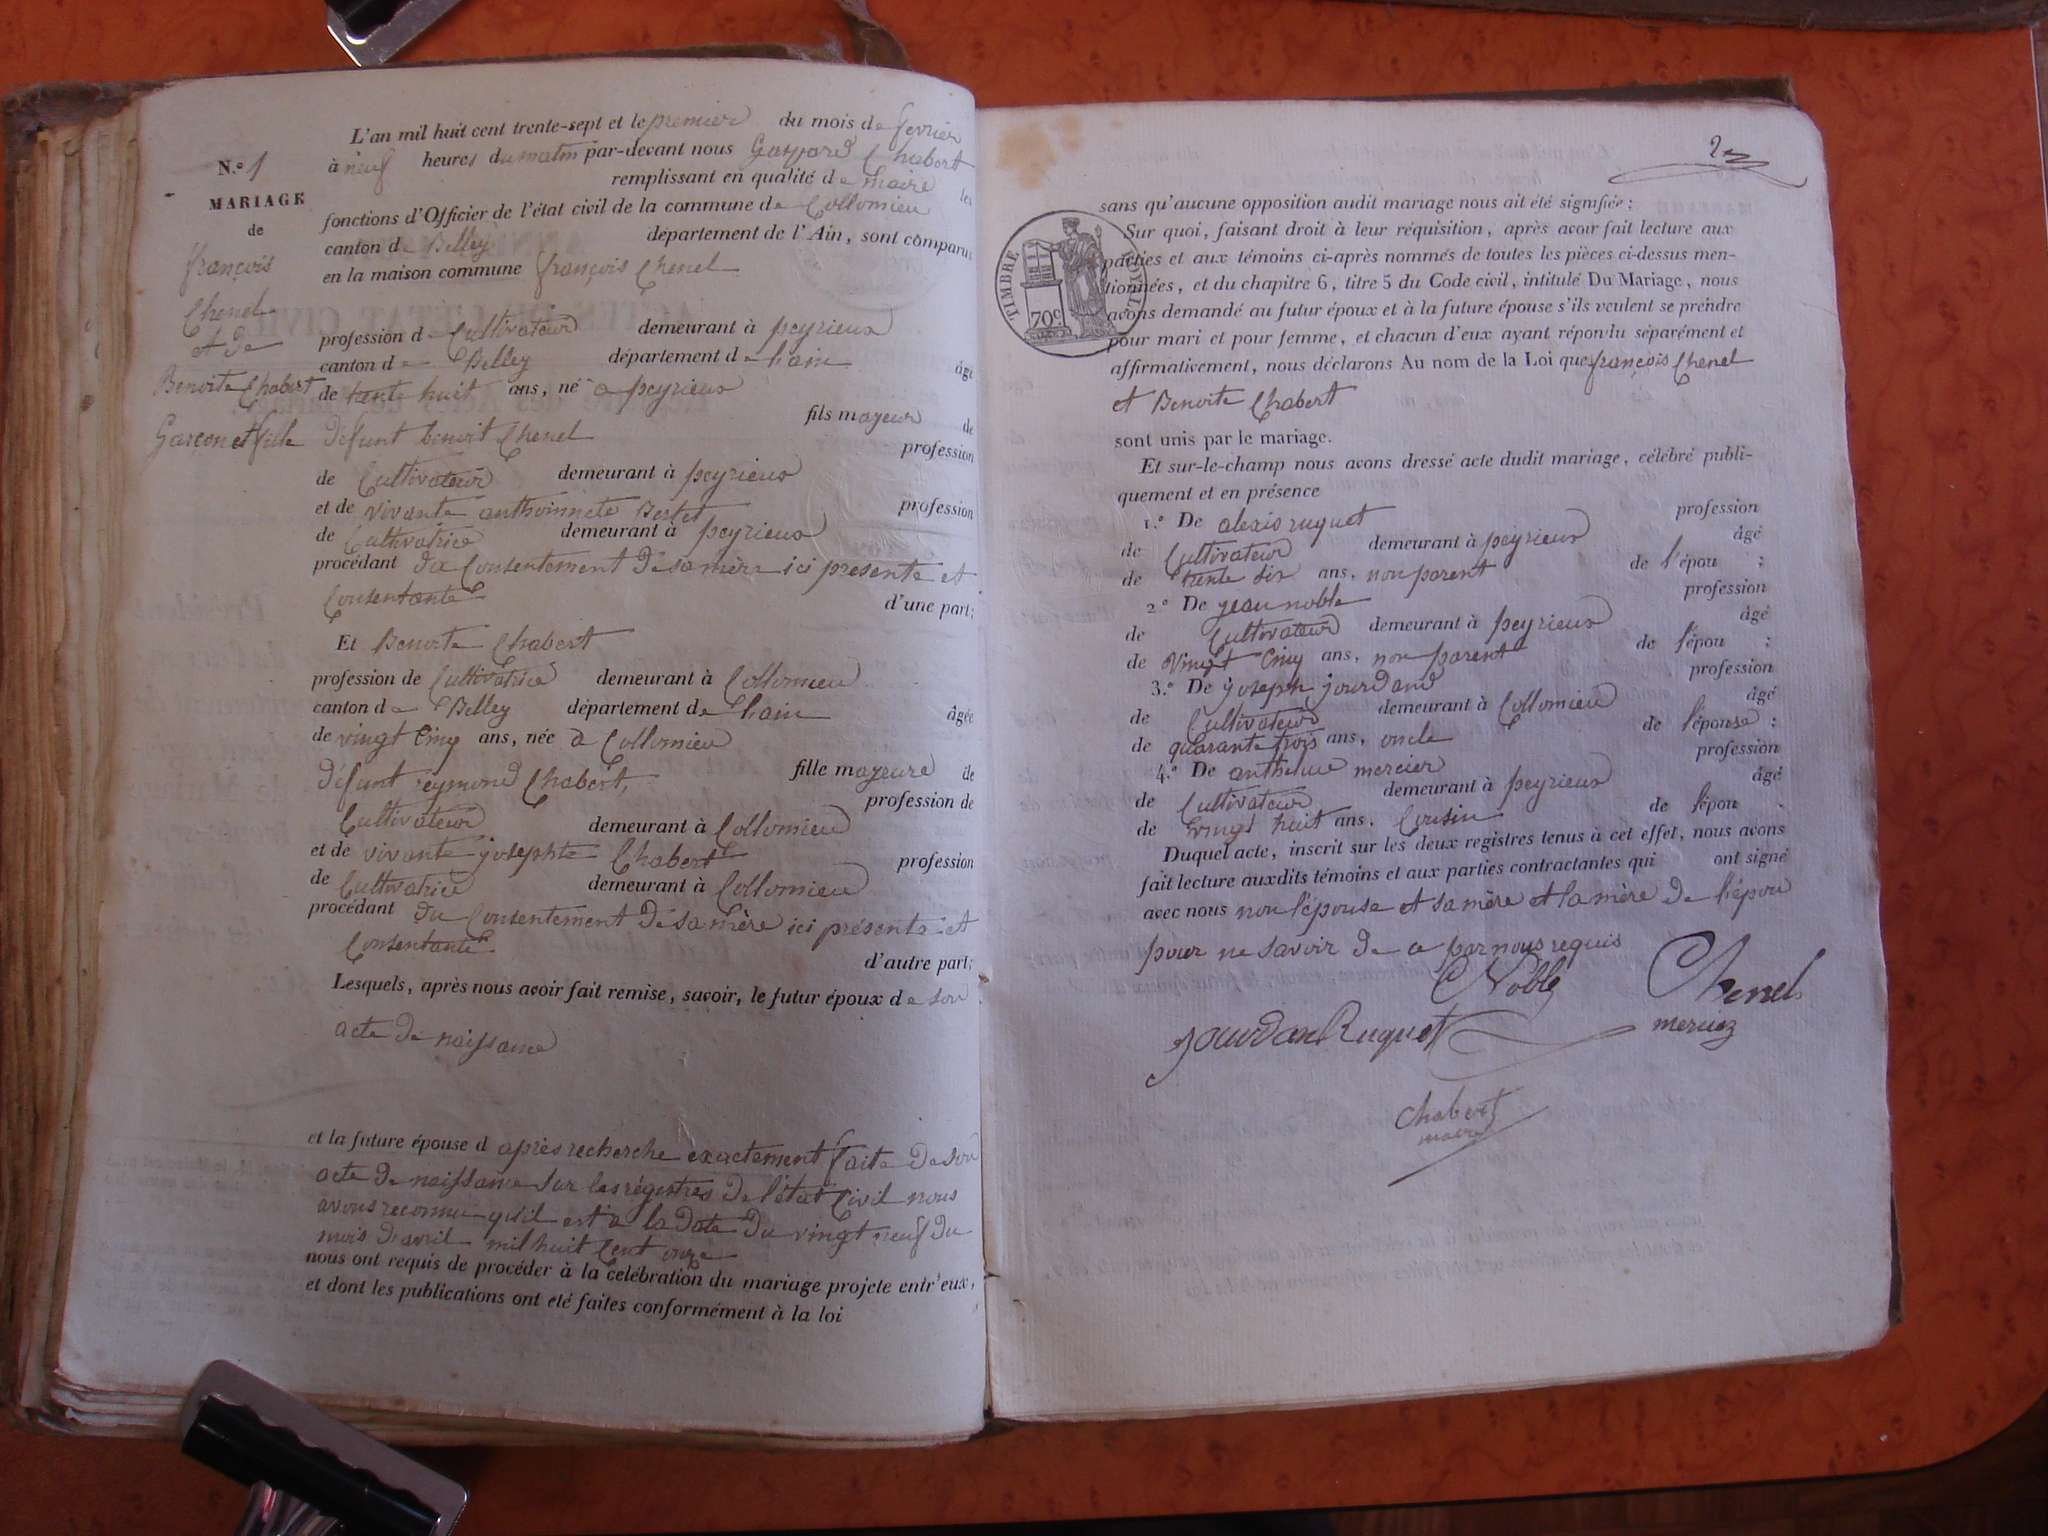 N.º 1
MARIAGE
de
françois
Chenel
et de
Benoite Chabert
Garçon et fille
L'an mil huit cent trente-sept et le premier du mois de fevrier
à neuf heures du matin par-devant nous Gaspard Chabert
remplissant en qualité de maire les
fonctions d'Officier de l'état civil de la commune de Collomieu
canton de Belley département de l'Ain, sont comparus
en la maison commune françois Chenel
profession de Cultivateur demeurant à peyrieux
canton de Belley département de lain âgé
de trente huit ans, né a peyrieux
fils mayeur de
défunt benoit Chenel profession
de Cultivateur demeurant à peyrieux
et de vivante anthoinnete Bertet profession
de Cultivatrice demeurant à peyrieux
procédant du Consentement de sa mère ici presente et
Consentante d'une part;
Et Benoite Chabert
profession de Cultivatrice demeurant à Collomieu
canton de Belley département de lain âgée
de vingt Cinq ans, née a Collomieu
fille mayeure de
défunt reymond Chabert, profession de
Cultivateur demeurant à Collomieu
et de vivante josephte Chabert profession
de Cultivatrice demeurant à Collomieu
procédant du Consentement de sa mère ici présente et
Consentante d'autre part;
Lesquels, après nous avoir fait remise, savoir, le futur époux de son
acte de naissance
et la future épouse d après recherche exactement faite de son
acte de naissance sur les régistres de l'état Civil nous
avons reconnu qu'il est a la date du vingt neuf du
mois d'avril mil huit Cent onze
nous ont requis de procéder à la célébration du mariage projeté entr'eux,
et dont les publications ont été faites conformément à la loi
2
TIMBRE ROYAL
70c
sans qu'aucune opposition audit mariage nous ait été signifiée;
Sur quoi, faisant droit à leur réquisition, après avoir fait lecture aux
parties et aux témoins ci-après nommés de toutes les pièces ci-dessus men-
tionnées, et du chapitre 6, titre 5 du Code civil, intitulé Du Mariage, nous
avons demandé au futur époux et à la future épouse s'ils veulent se prendre
pour mari et pour femme, et chacun d'eux ayant répondu séparément et
affirmativement, nous déclarons Au nom de la Loi que françois Chenel
et Benoite Chabert
sont unis par le mariage.
Et sur-le-champ nous avons dressé acte dudit mariage, célébré publi-
quement et en présence
1.º De alexis ruquet profession
de Cultivateur demeurant à peyrieux âgé
de trente six ans, non parent de l'épou ;
2.º De jean noble profession
de Cultivateur demeurant à peyrieux âgé
de vingt Cinq ans, non parent de l'épou ;
3.º De joseph jourdand profession
de Cultivateur demeurant à Collomieu âgé
de quarante trois ans, oncle de l'épouse ;
4.º De anthelme mercier profession
de Cultivateur demeurant à peyrieux âgé
de vingt huit ans, Cousin de l'épou .
Duquel acte, inscrit sur les deux registres tenus à cet effet, nous avons
fait lecture auxdits témoins et aux parties contractantes qui ont signé
avec nous non l'épouse et sa mère et la mère de l'épou
pour ne savoir de ce par nous requis
Noble Chenel
Jourdan Ruquet
Chabert
maire